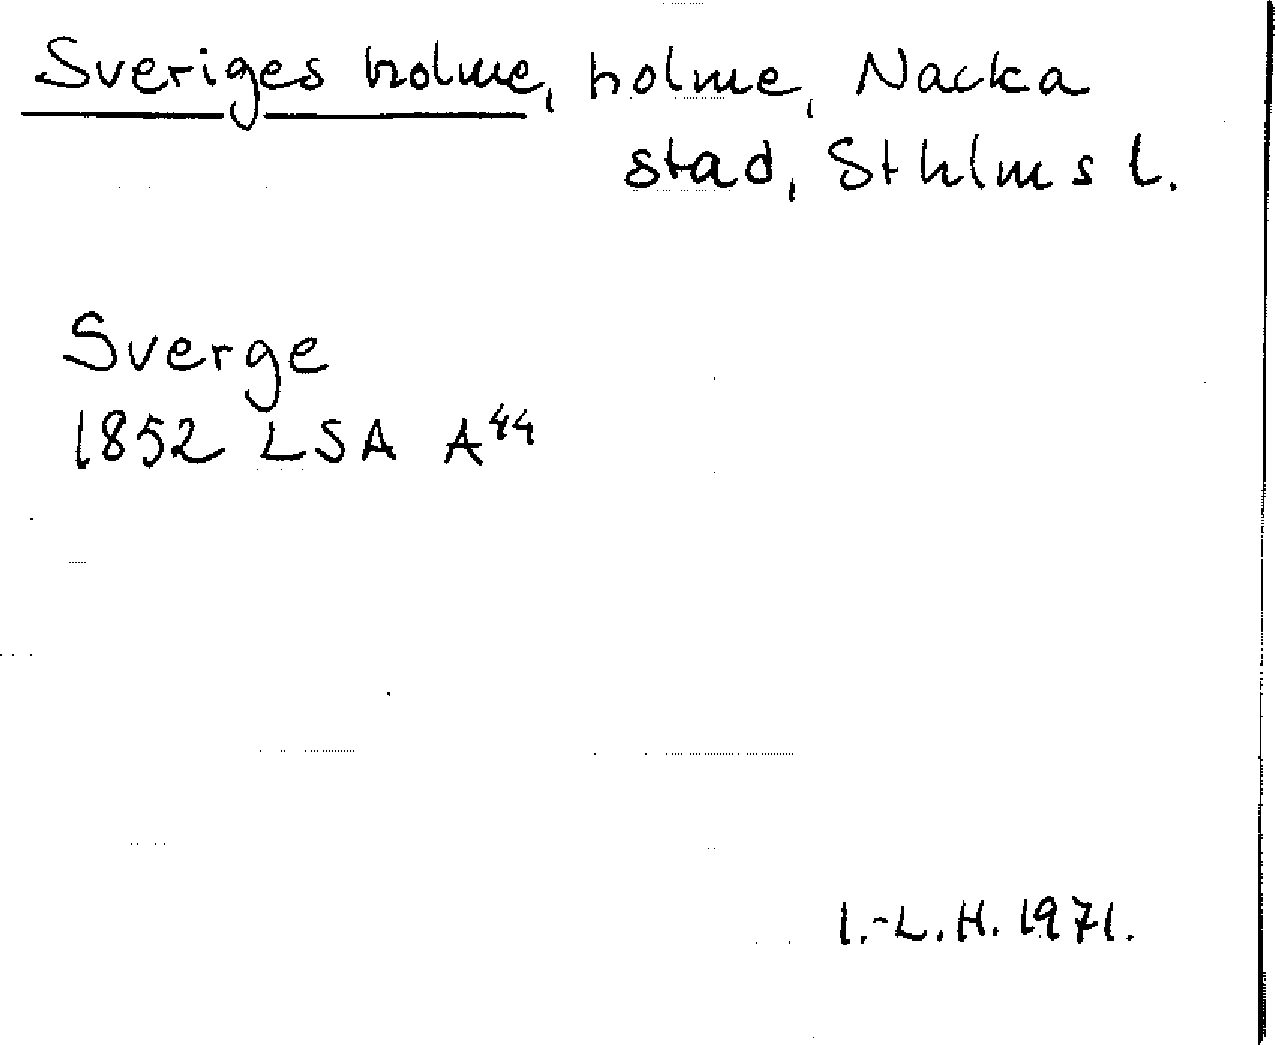 Sveriges holme, holme, Nacka
stad, Sthlms l.
Sverge
1852 LSA A44
I.-L.H. 1971.